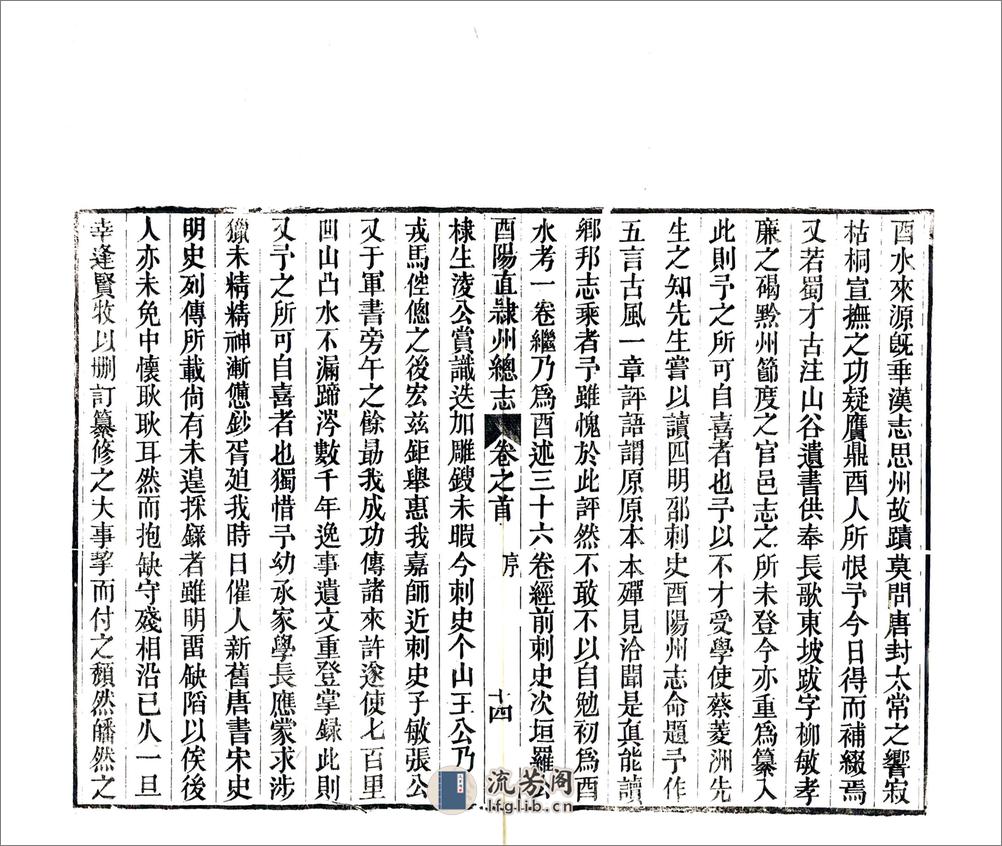 酉水來源旣乖漢志思州故蹟莫問唐封太常之響寂
枯桐宣撫之功疑贋鼎酉人所恨予今日得而補綴焉
又若蜀才古注山谷遺書供奉長歌東坡跋字柳敏孝
廉之碣黔州節度之官邑志之所未登今亦重爲纂入
此則予之所可自喜者也予以不才受學使蔡菱洲先
生之知先生嘗以讀四明邵刺史酉陽州志命題予作
五言古風一章評語謂原原本本殫見洽聞是眞能讀
鄉邦志乘者予雖愧於此評然不敢不以自勉初爲酉
水考一卷繼乃爲酉述三十六卷經前刺史次垣羅公
酉陽直隸州總志 卷之首 序 十四
棣生淩公賞識迭加雕鎪未暇今刺史个山王公乃
戎馬倥傯之後宏兹鉅舉惠我嘉師近刺史子敏張公
又于軍書旁午之餘勗我成功傳諸來許遂使七百里
凹山凸水不漏蹄涔數千年逸事遺文重登掌録此則
又予之所可自喜者也獨惜予幼承家學長應蒙求涉
獵未精精神漸憊鈔胥廹我時日催人新舊唐書宋史
明史列傳所載尚有未遑採錄者雖明畱缺䧟以俟後
人亦未免中懷耿耿耳然而抱缺守殘相沿已乆一旦
幸逢賢牧以刪訂纂修之大事挐而付之頽然皤然之
流芳阁
lfglib.cn